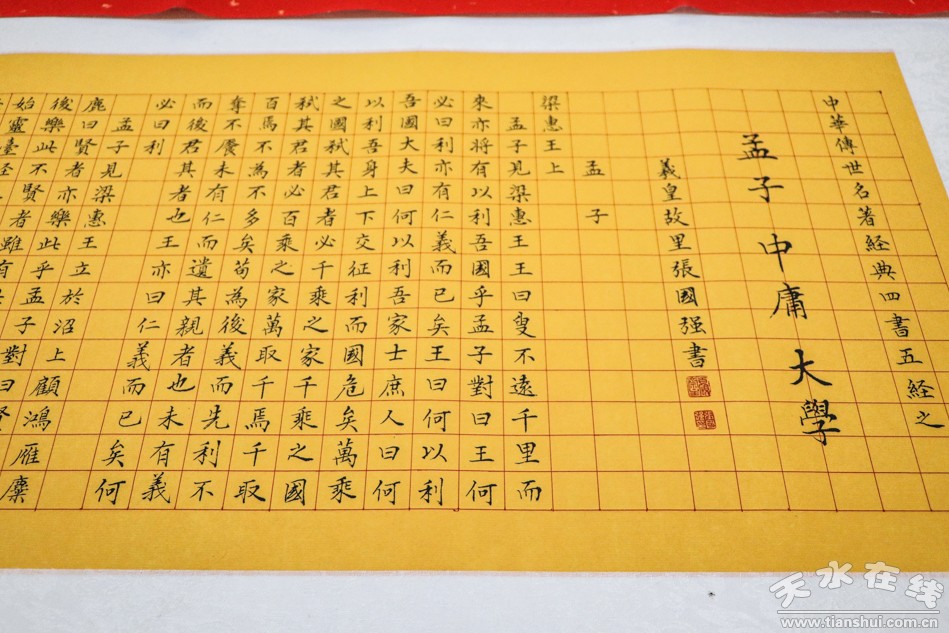 中華傳世名著經典四書五経之
孟子中庸大學
義皇故里張國强書
孟子
梁惠王上
孟子見梁惠王王曰叟不遠千里而
來亦將有以利吾國乎孟子對曰王何
必曰利亦有仁義而已矣王曰何以利
吾國大夫曰何以利吾家士庶人曰何
以利吾身上下交征利而國危矣萬乘
之國弒其君者必千乘之家千乘之國
弒其君者必百乘之家萬取千焉千取
百焉不為不多矣苟為後義而先利不
奪不饜未有仁而遺其親者也未有義
而後其君者也王亦曰仁義而已矣何
必曰利
孟子見梁惠王立於沼上顧鴻雁麋
鹿曰賢者亦樂此乎孟子對曰賢
後樂此不賢者雖有
始靈臺經
天水在线
www.tianshui.com.cn